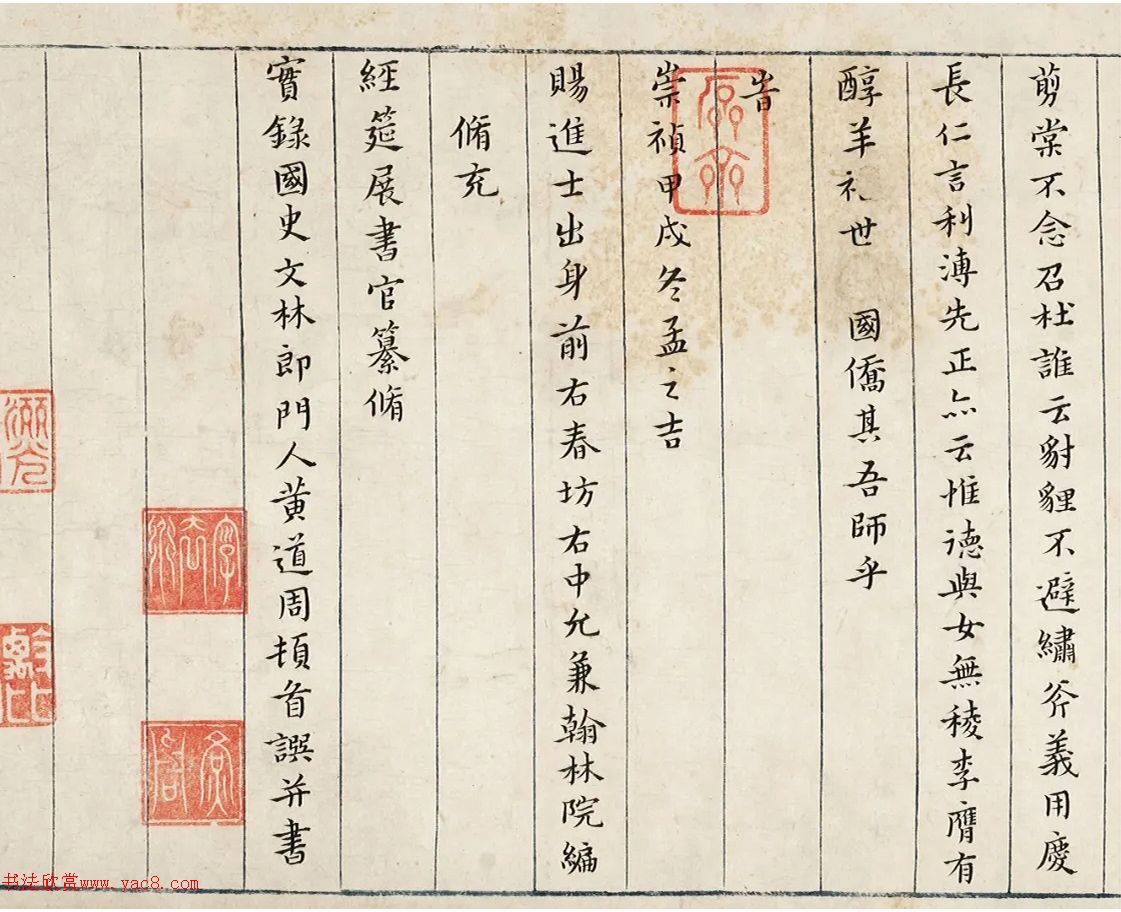 剪棠不念召杜誰云豺貍不避繡斧義用慶
長仁言利溥先正亦云惟德與女無稜李膺有
醇羊祜世 國僑其吾師乎
旹
崇禎甲戌冬孟之吉
賜進士出身前右春坊右中允兼翰林院編
脩充
經筵展書官纂脩
實錄國史文林郎門人黄道周頓首譔并書
书法欣赏www.yac8.com